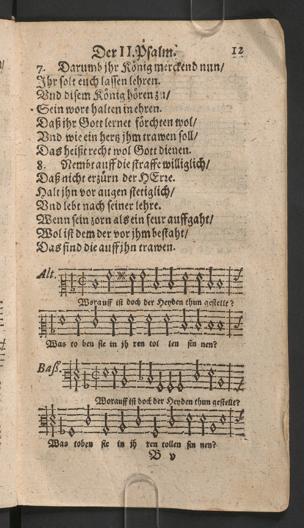 Der II. Psalm. 12
7. Darumb jhr König merckend nun/
Jhr solt euch lassen lehren.
Vnd disem König hören zu/
Sein wort halten in ehren.
Daß jhr Gott lernet förchten wol/
Vnd wie ein hertz jhm trawen soll/
Das heißt recht wol Gott dienen.
8. Nembt auff die straffe williglich/
Daß nicht erzürn der HErre.
Halt jhn vor augen stetiglich/
Vnd lebt nach seiner lehre.
Wenn sein zorn als ein feur auffgaht/
Wol ist dem der vor jhm bestaht/
Das sind die auff jhn trawen.
Alt.
Worauff ist doch der Heyden thun gestellt?
Was to ben sie in jh ren tol len sin nen?
Baß.
Worauff ist doch der Heyden thun gestellt?
Was toben sie in jh ren tollen sin nen?
B v